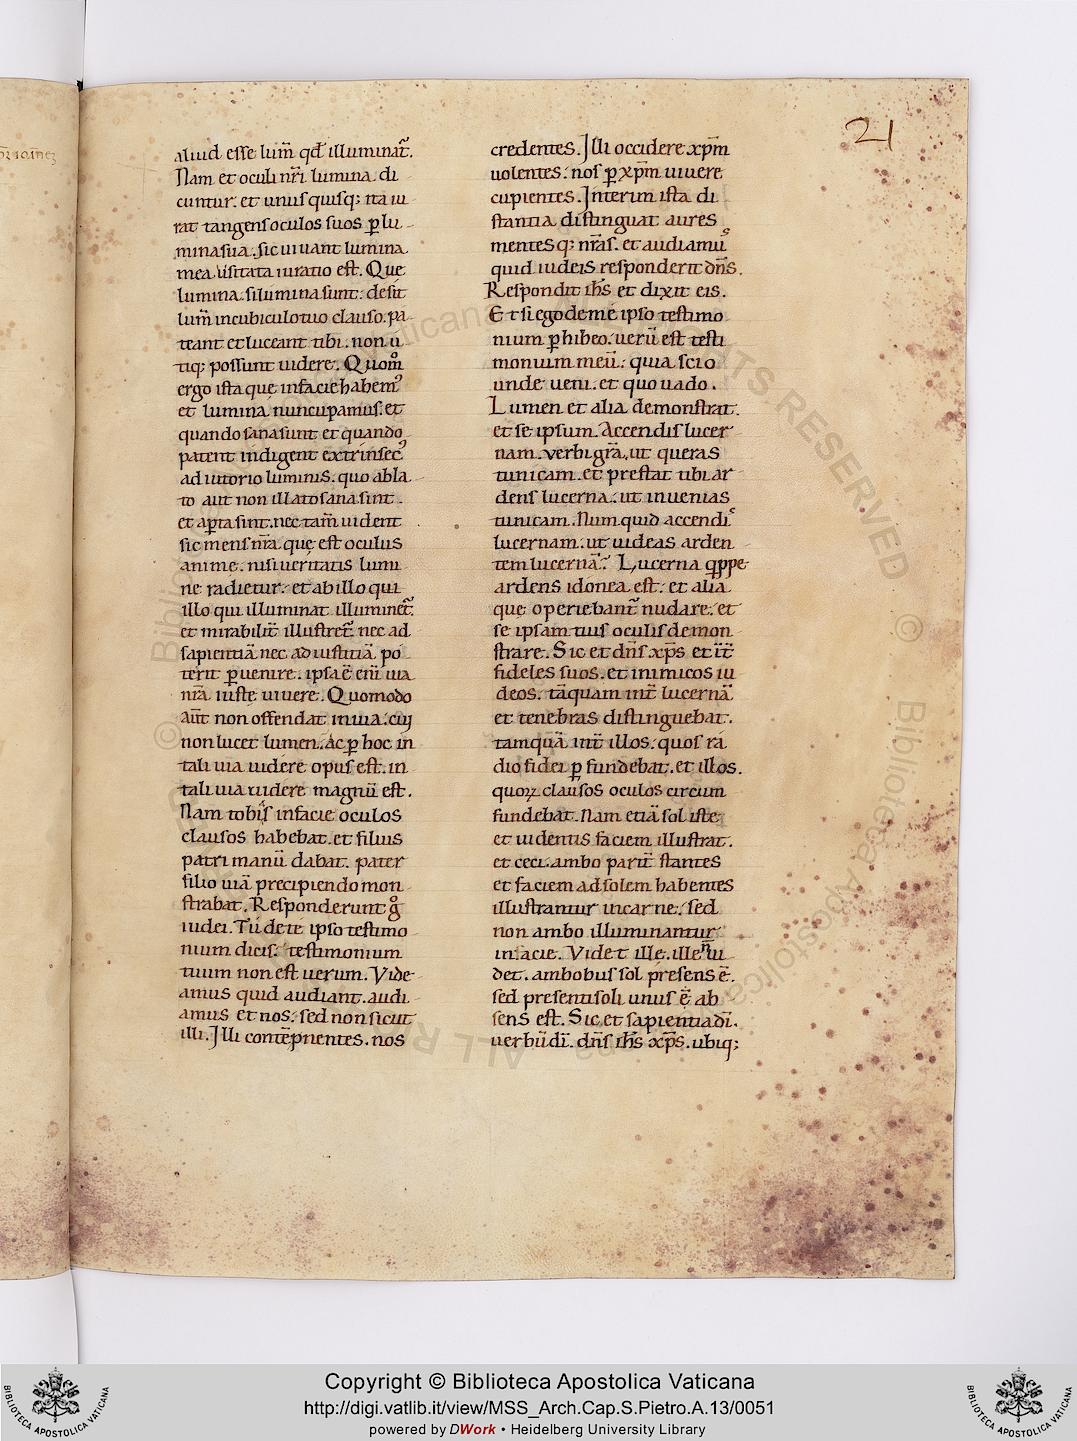 21
aliud esse lum̄ qd̄ illuminat᷑.
Nam et oculi nr̄i lumina di
cuntur. et unus quisq; ita iu
rat tangens oculos suos ꝑ lu
mina sua. sic uiuant lumina
mea. Usitata iuratio est. Que
lumina. si lumina sunt. desit
lum̄ in cubiculo tuo clauso. pa
teant et luceant tibi. non u
tiq; possunt uidere. Quom̊
ergo ista quę in facie habem᷒
et lumina nuncupamus. et
quando sana sunt et quando
patent indigent extrinsec᷒
adiutorio luminis. quo abla
to aut non illato sana sint.
et aꝑta sint. nec tam̄ uident
sic mens nr̄a. quę est oculus
anime. nisi ueritatis lumi
ne radietur. et ab illo qui
illo qui illuminat illuminet᷑.
et mirabilit̄ illustret᷑. nec ad
sapientiā nec ad iustitiā po
terit ꝑuenire. ipsa ē eni uia
nr̄a iuste uiuere. Quomodo
aut̄ non offendat in uia. cui
non lucet lumen. ac ꝑ hoc in
tali uia uidere opus est. in
tali uia uidere magnū est.
Nam tobis in facie oculos
clausos habebat. et filius
patri manū dabat. pater
filio uiā precipiendo mon
strabat. Responderunt g̊
iudei. Tu de te ipso testimo
nium dicis. testimonium
tuum non est uerum. Vide
amus quid audiant. audi
amus et nos. sed non sicut
illi. Illi contēpnentes. nos
credentes. Illi occidere xp̄m
uolentes. nos ꝑ xp̄m uiuere
cupientes. Interim ista di
stantia distinguat aures
mentesq; nr̄as. et audiam᷒
quid iudeis responderit dn̄s.
Respondit ih̄s et dixit eis.
Et si ego de me ipso testimo
nium ꝑhibeo. uerū est testi
monium meū. quia scio
unde ueni. et quo uado.
Lumen et alia demonstrat.
et se ipsum. Accendis lucer
nam. uerbi gr̄a. ut queras
tunicam. et prestat tibi ar
dens lucerna. ut inuenias
tunicam. Num quid accendis
lucernam. ut uideas arden
tem lucernā. Lucerna q̄ppe
ardens idonea est. et alia
que operiebant᷑ nudare. et
se ipsam tuis oculis demon
strare. Sic et dn̄s xp̄s et int̄
fideles suos. et inimicos iu
deos. tāquam int̄ lucernā
et tenebras distinguebat.
tamquā int̄ illos. quos ra
dio fidei ꝑfundebat. et illos.
quoꝝ clausos oculos circum
fundebat. Nam etiā sol iste
et uidentis faciem illustrat.
et ceci. ambo parit̄ stantes
et faciem ad solem habentes
illustrantur in carne. sed
non ambo illuminantur
in acie. Videt ille. ille n̄ ui
det. ambobus sol presens ē.
sed presenti soli unus ē ab
sens est. Sic et sapientia dī.
uerbū dī. dn̄s ih̄s xp̄s. ubiq;
© Biblioteca Apostolica Vaticana
ALL RIGHTS RESERVED
Copyright © Biblioteca Apostolica Vaticana
http://digi.vatlib.it/view/MSS_Arch.Cap.S.Pietro.A.13/0051
powered by DWork • Heidelberg University Library
BIBLIOTECA APOSTOLICA VATICANA
BIBLIOTECA APOSTOLICA VATICANA